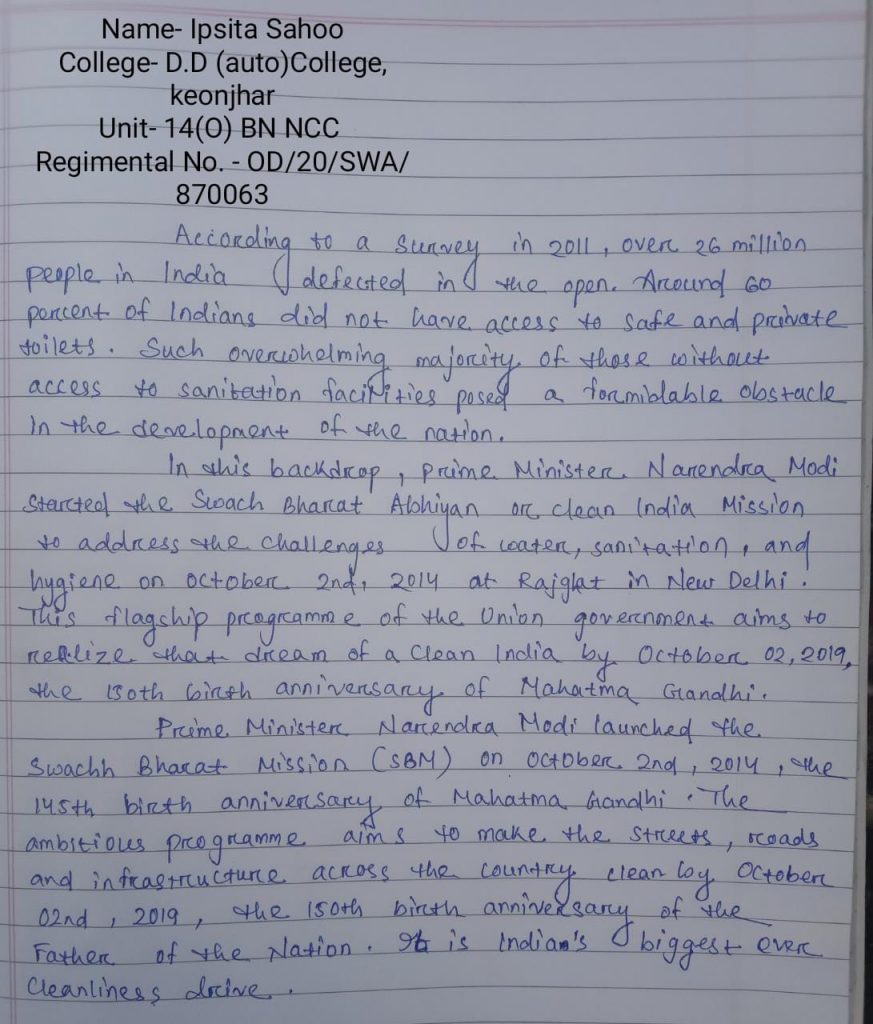 Name- Ipsita Sahoo
College- D.D (auto)College,
keonjhar
Unit- 14(O) BN NCC
Regimental No. - OD/20/SWA/
870063
According to a survey in 2011, over 26 million
people in India defected in the open. Around 60
percent of Indians did not have access to safe and private
toilets. Such overwhelming majority of those without
access to sanitation facilities posed a formiblable obstacle
In the development of the nation.
In this backdrop, prime Minister Narendra Modi
started the Swach Bharat Abhiyan or clean India Mission
to address the challenges of water, sanitation, and
hygiene on october 2nd, 2014 at Rajghat in New Delhi.
This flagship programme of the Union government aims to
realize that dream of a Clean India by October 02, 2019,
the 150th birth anniversary of Mahatma Gandhi.
Prime Minister Narendra Modi launched the
Swachh Bharat Mission (SBM) on october 2nd, 2014, the
145th birth anniversary of Mahatma Gandhi. The
ambitious programme aims to make the streets, roads
and infrastructure across the country clean by October
02nd, 2019, the 150th birth anniversary of the
Father of the Nation. It is Indian's biggest ever
Cleanliness drive.